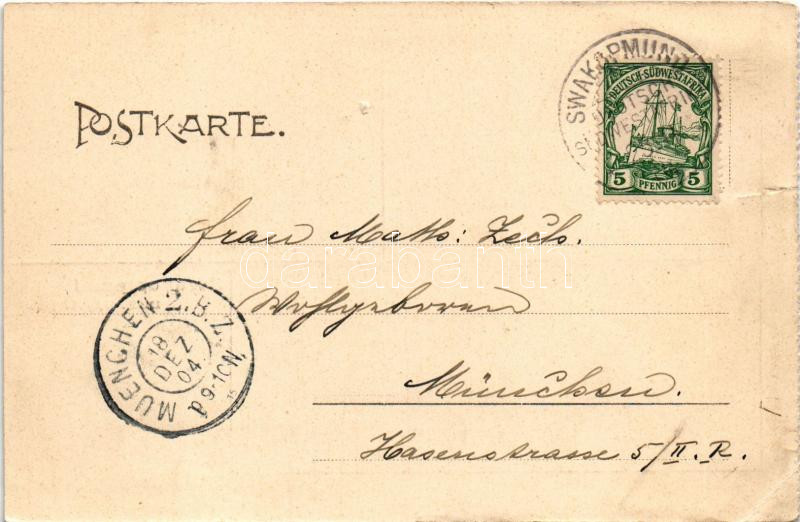 POSTKARTE.
SWAKOPMUND
DEUTSCH-SÜDWESTAFRIKA
5 PFENNIG 5
Frau Math: Zech.
darabanth
Wohlgeboren
MUENCHEN 2.B.Z.
18
DEZ
04
9-10N.
München.
Hasenstrasse 5/II. R.